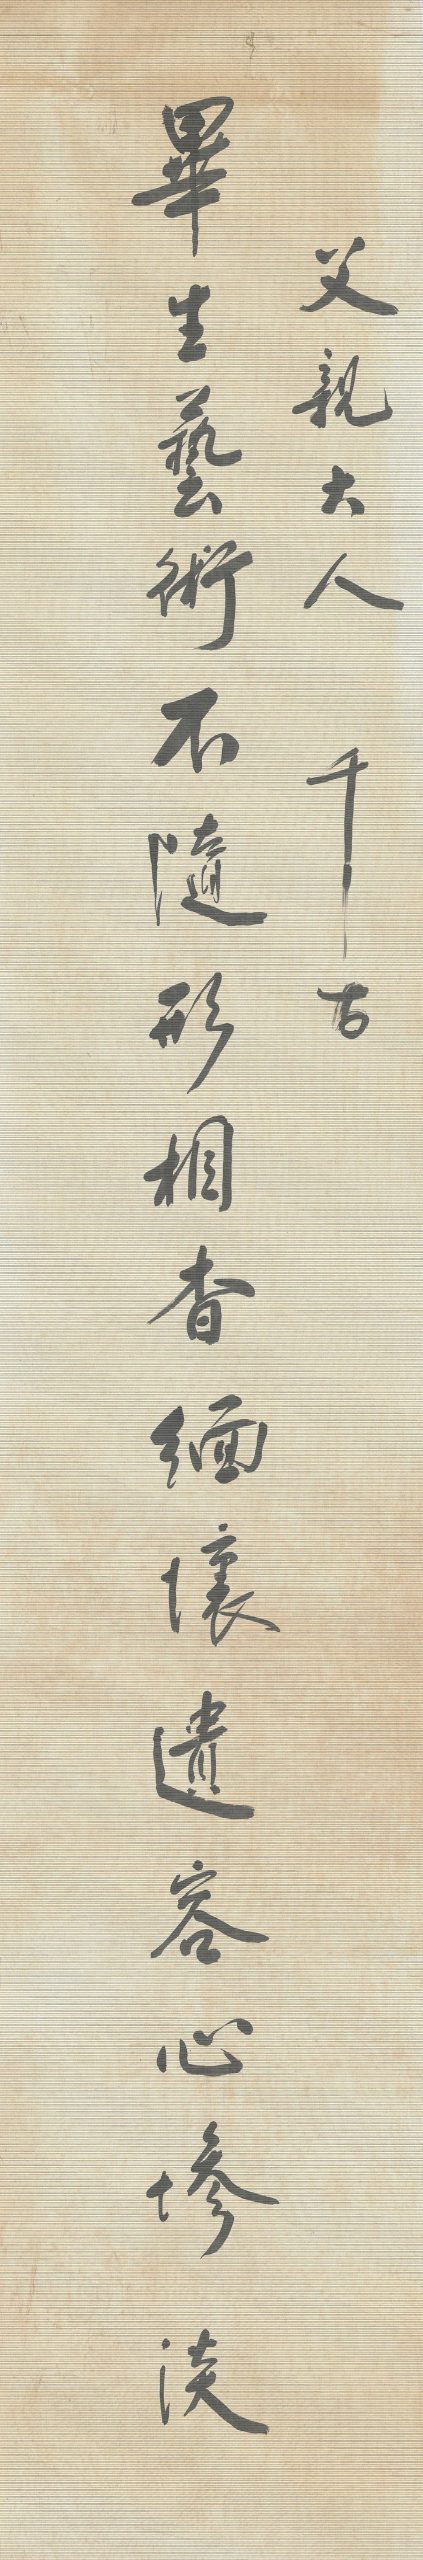 父親大人 千古
畢生藝術不隨形相杳緬懷遺容心慘淡